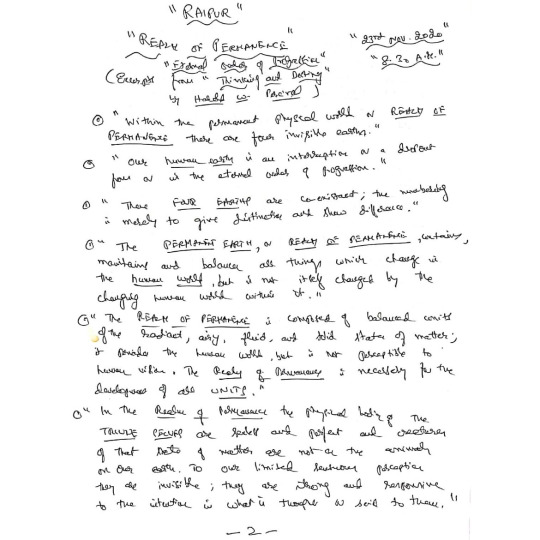 "RAIPUR"
"REALM OF PERMANENCE" "23rd Nov. 2020"
"Eternal Order of Progression" "8.30 A.M."
(Excerpt from "Thinking and Destiny"
by Harold W. Percival)
"Within the permanent physical world or REALM OF
PERMANENCE there are four invisible earths."
"Our human earth is an interruption or a
from or in the eternal order of progression."
"These FOUR EARTHS are co-existent; the numbering
is merely to give distinction and show difference."
"The PERMANENT EARTH, or REALM OF PERMANENCE, contains,
maintains and balances all things which change in
the human world, but is not itself changed by the
changing human world within it."
"The REALM OF PERMANENCE is composed of balanced units
of the radiant, airy, fluid, and solid states of matter;
it the human world, but is not perceptible to
human vision. The Realm of Permanence is necessary for the
development of all UNITS."
"In the Realm of Permanence the physical body of the
TRIUNE SELVES are and perfect and creatures
of that state of matter are not as the animals
on our earth. To our limited perception
they are invisible; they are strong and responsive
to the intention in what is thought or said to them."
-2-